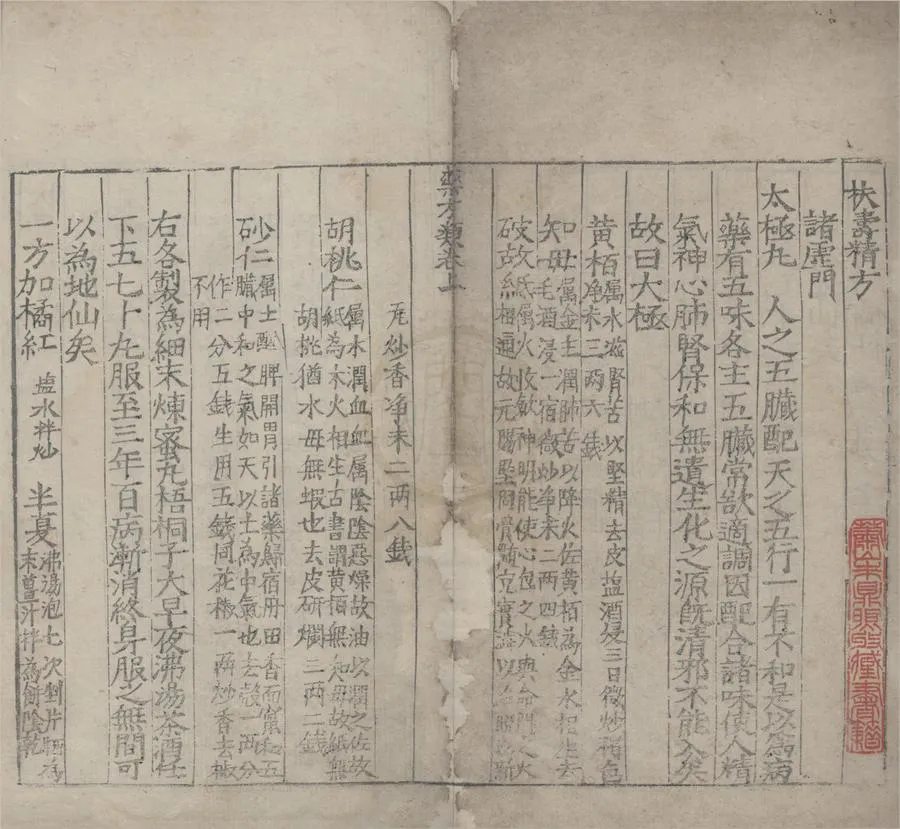 扶壽精方
諸虛門
太極丸　人之五臟配天之五行一有不和是以為病
藥有五味各主五臟常欲適調因配合諸味使人精
氣神心肺腎保和無遺生化之源既清邪不能入矣
故曰太極
黃栢屬水滋腎苦以堅精去皮塩酒浸三日微炒褐色
净末三兩六錢
知母屬金主潤肺苦以降火佐黃栢為金水相生去
毛酒浸一宿微炒净末二兩四錢
破故紙屬火收斂神明能使心包之火與命門之火
相通故元陽堅固骨髓充實
藥方類卷上
瓦炒香净末二兩八錢
胡桃仁屬木潤血血屬陰陰惡燥故油以潤之佐故
紙為木火相生古書謂黃栢無知母故紙無
胡桃猶水母無蝦也去皮研爛三兩二錢
砂仁屬土醒脾開胃引諸藥歸宿丹田香而竄和五
臟中和之氣如天以土為中氣也去殼一兩分
作二分五錢生用五錢同花椒一兩炒香去椒
不用
右各製為細末煉蜜丸梧桐子大早夜沸湯茶酒任
下五七十丸服至三年百病漸消終身服之無間可
以為地仙矣
一方加橘紅塩水拌炒　半夏沸湯泡七次剉片晒為
末薑汁拌為餅陰乾